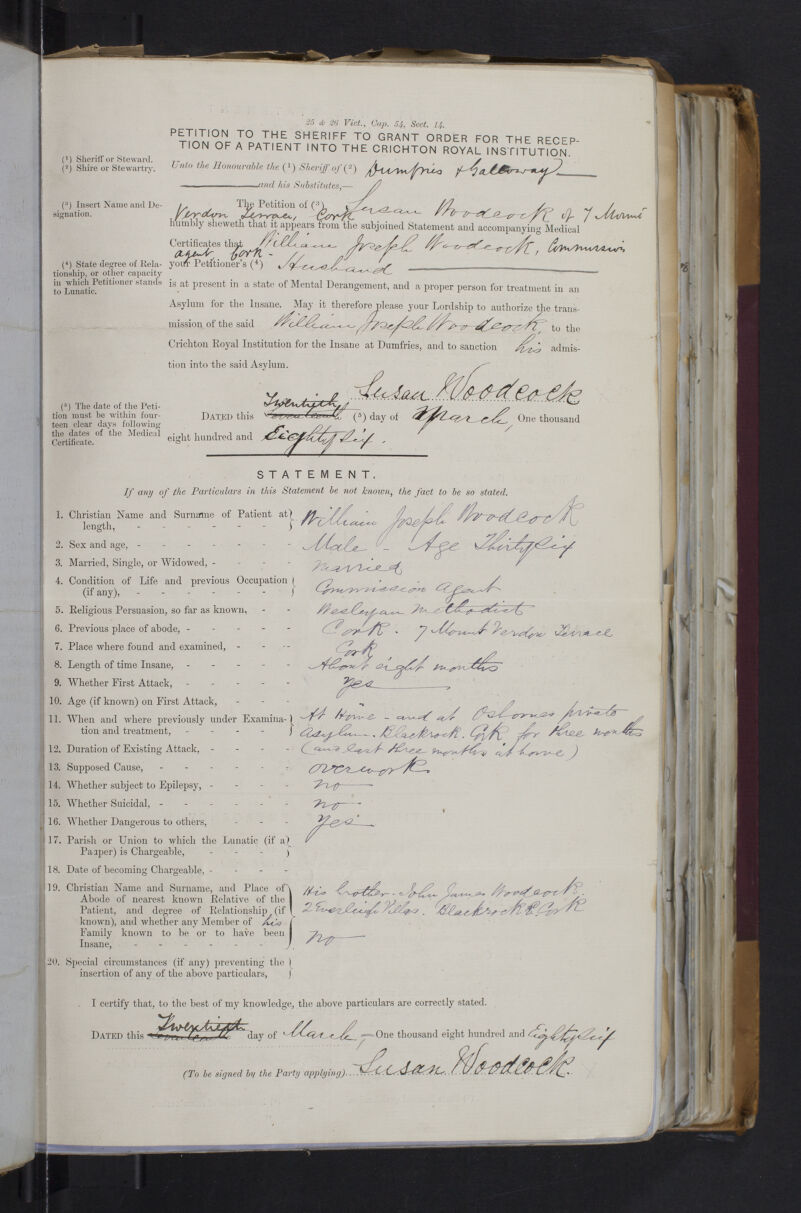 25 & 26 Vict., Cap. 54, Sect. 14.
PETITION TO THE SHERIFF TO GRANT ORDER FOR THE RECEP-
TION OF A PATIENT INTO THE CRICHTON ROYAL INSTITUTION.
(1) Sheriff or Steward.
(2) Shire or Stewartry.
Unto the Honourable the (1) Sheriff of (2) Dumfries & Galloway
and his Substitutes,—
(3) Insert Name and De-
signation.
The Petition of (3) Susan Woodcock of 7 Mount
Verdon Terrace, Cork
humbly sheweth that it appears from the subjoined Statement and accompanying Medical
Certificates that William Joseph Woodcock, Commission
agent Cork -
(4) State degree of Rela-
tionship, or other capacity
in which Petitioner stands
to Lunatic.
your Petitioner's (4) Husband
is at present in a state of Mental Derangement, and a proper person for treatment in an
Asylum for the Insane. May it therefore please your Lordship to authorize the trans-
mission of the said William Joseph Woodcock, to the
Crichton Royal Institution for the Insane at Dumfries, and to sanction his admis-
tion into the said Asylum.
Susan Woodcock
(5) The date of the Peti-
tion must be within four-
teen clear days following
the dates of the Medical
Certificate.
Twentieth
DATED this (5) day of March, One thousand
eight hundred and Eighty Six.
STATEMENT.
If any of the Particulars in this Statement be not known, the fact to be so stated.
1. Christian Name and Surname of Patient at
length, - - - - - - William Joseph Woodcock
2. Sex and age, - - - - - - - Male - Age Thirty Six
3. Married, Single, or Widowed, - - - - Married
4. Condition of Life and previous Occupation
(if any), - - - - - - Commission Agent
5. Religious Persuasion, so far as known, - - Wesleyan Methodist
6. Previous place of abode, - - - - - Cork. 7 Mount Verdon Terrace
7. Place where found and examined, - - - Cork
8. Length of time Insane, - - - - - About eight months
9. Whether First Attack, - - - - - Yes
10. Age (if known) on First Attack, - - -
11. When and where previously under Examina-
tion and treatment, - - - - At Home - and at Osbornes private
Asylum. Blackrock. Cork for three months
12. Duration of Existing Attack, - - - - (and last three months at home)
13. Supposed Cause, - - - - - - overwork
14. Whether subject to Epilepsy, - - - - no
15. Whether Suicidal, - - - - - - no
16. Whether Dangerous to others, - - - yes
17. Parish or Union to which the Lunatic (if a
Pauper) is Chargeable, - - -
18. Date of becoming Chargeable, - - - -
19. Christian Name and Surname, and Place of
Abode of nearest known Relative of the
Patient, and degree of Relationship (if
known), and whether any Member of his
Family known to be or to have been
Insane, - - - - - - -
His brother. John James Woodcock.
2 Everleigh Villas. Blackrock Rd. Cork
no
20. Special circumstances (if any) preventing the
insertion of any of the above particulars,
I certify that, to the best of my knowledge, the above particulars are correctly stated.
Twentieth
DATED this day of March, — One thousand eight hundred and Eighty Six
(To be signed by the Party applying) Susan Woodcock.